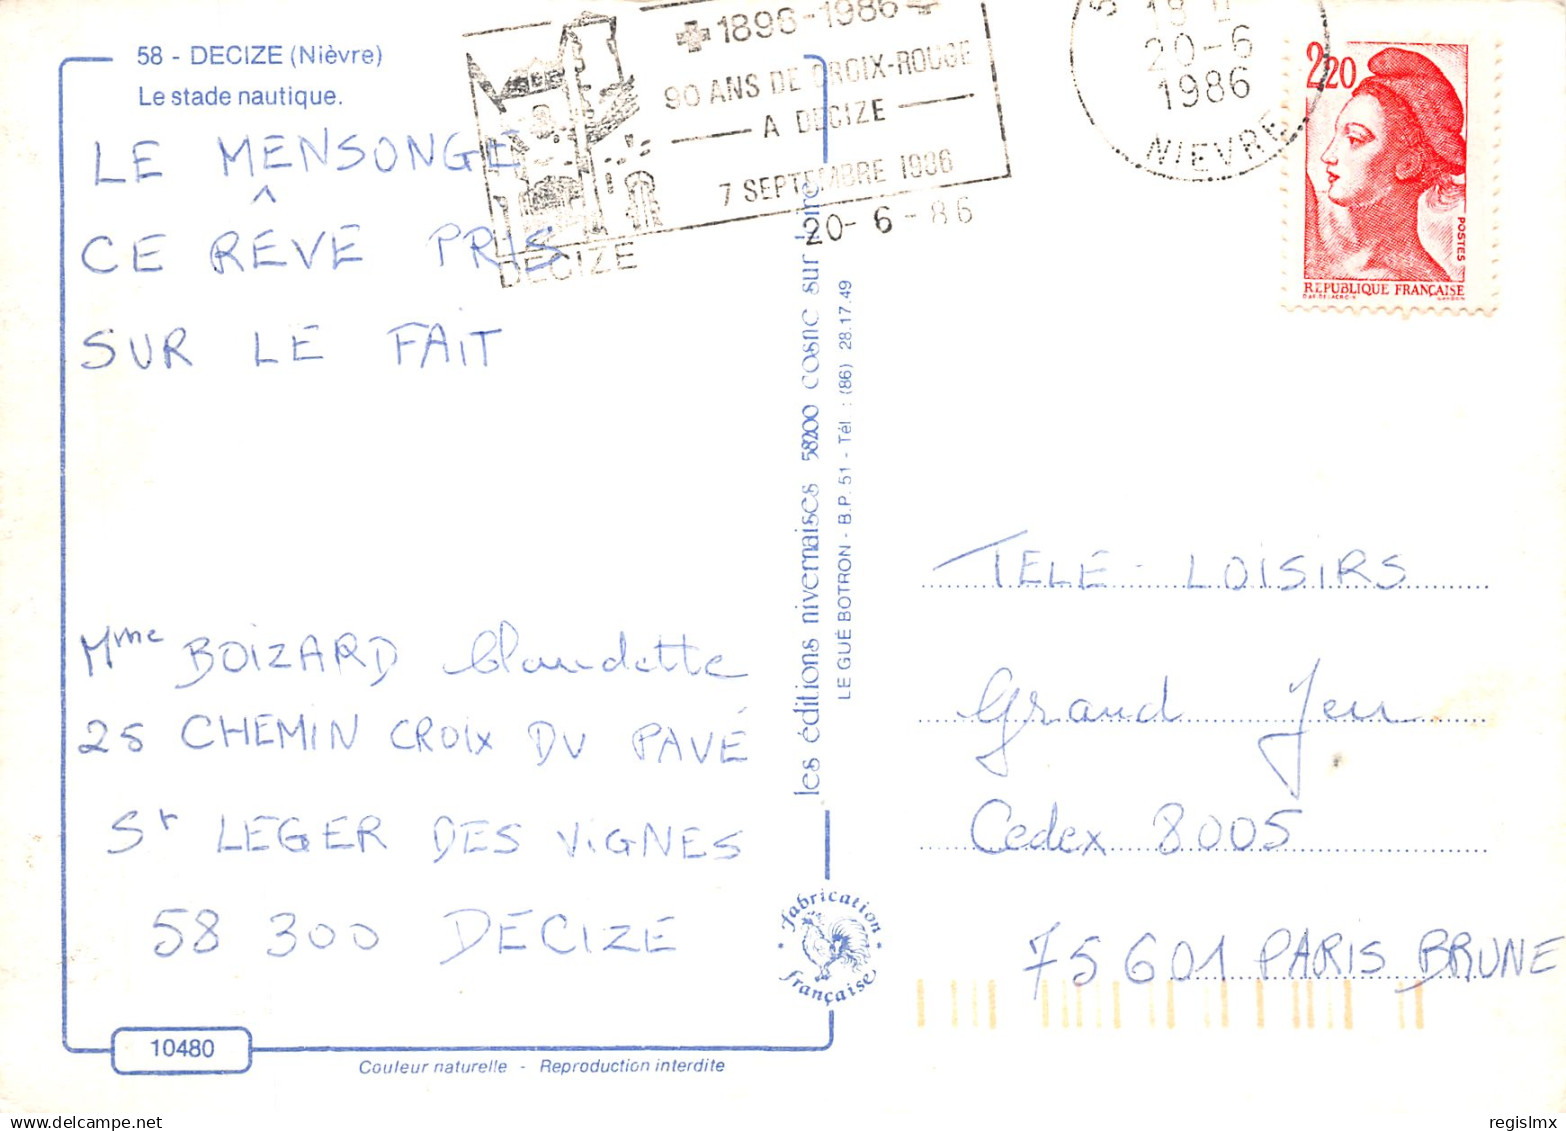 58 - DECIZE (Nièvre)
Le stade nautique.
1896-1986
90 ANS DE CROIX-ROUGE
A DECIZE
7 SEPTEMBRE 1986
20-6-86
DECIZE
20-6
1986
NIEVRE
2,20
POSTES
REPUBLIQUE FRANÇAISE
LE MENSONGE
CE RÊVE PRIS
SUR LE FAIT
Mme BOIZARD Claudette
25 CHEMIN CROIX DU PAVÉ
St LEGER DES VIGNES
58 300 DECIZE
les éditions nivernaises 58200 cosne sur loire
LE GUÉ BOTRON - B.P. 51 - Tél : (86) 28.17.49
TELE - LOISIRS
Grand Jeu
Cedex 8005
75601 PARIS BRUNE
Fabrication
Française
10480
Couleur naturelle - Reproduction interdite
regislmx